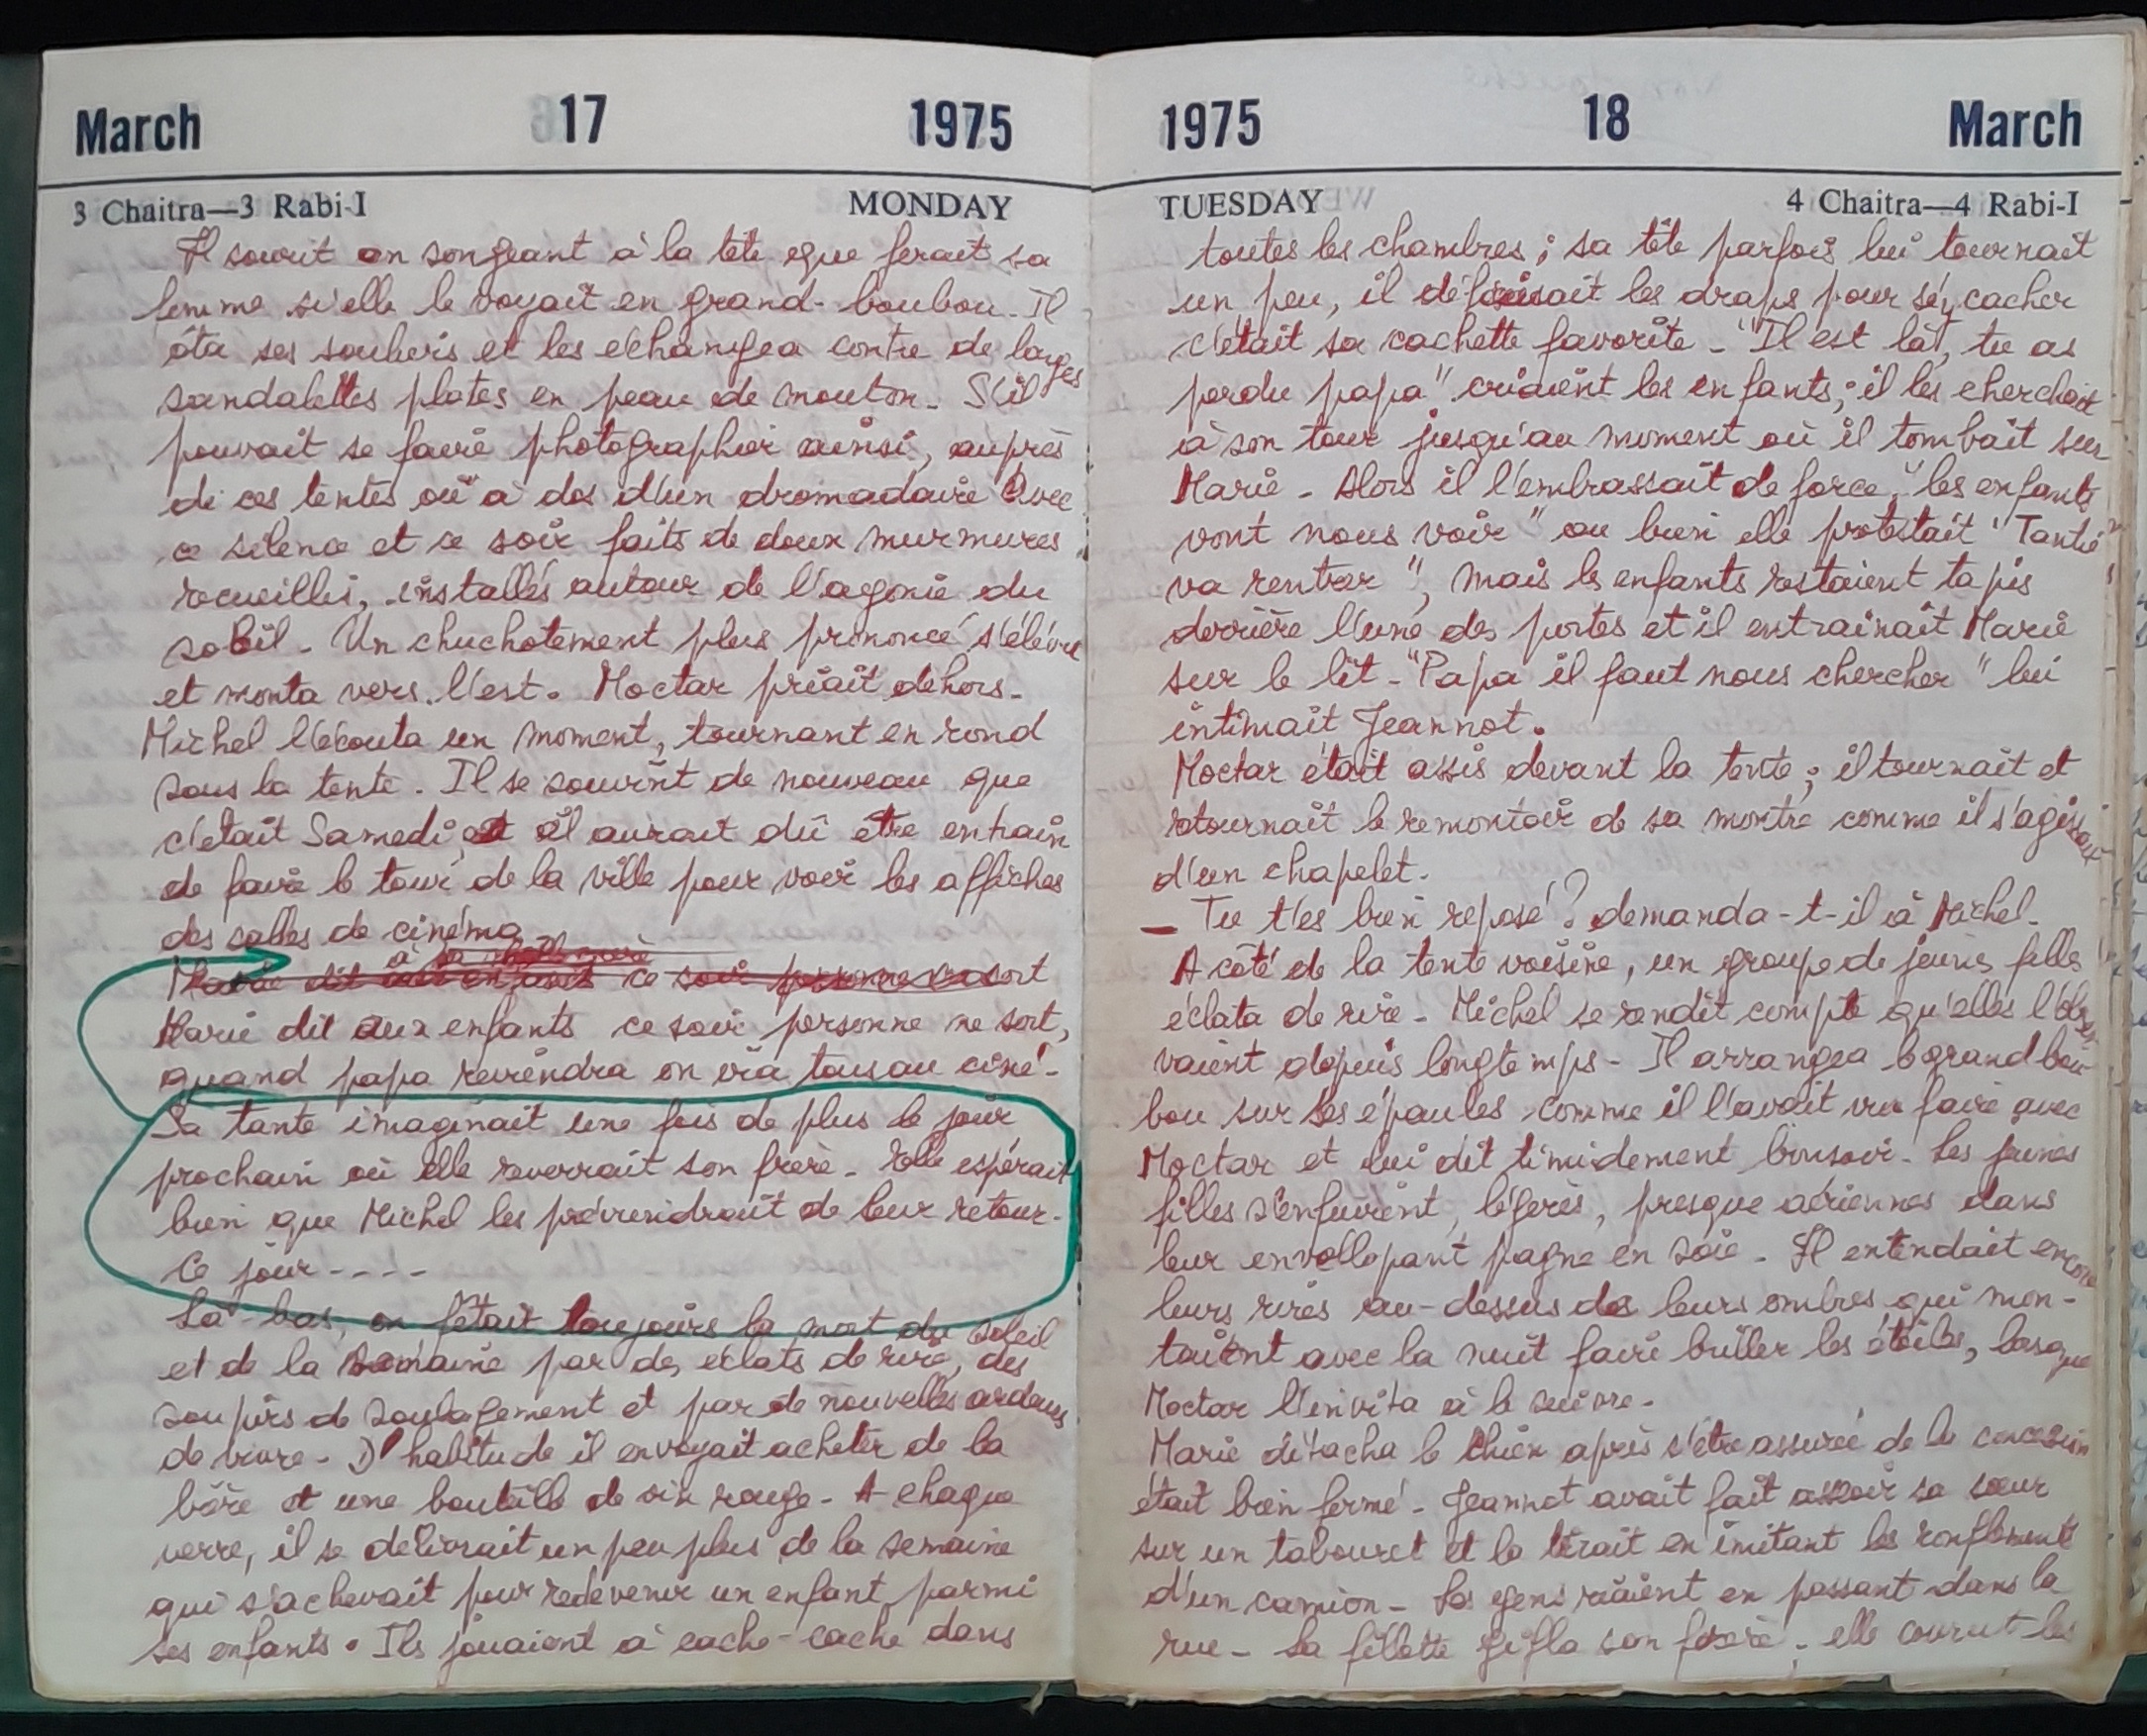 March 17 1975
3 Chaitra—3 Rabi-I MONDAY
Il sourit en songeant à la tête que ferait sa
femme si elle le voyait en grand-boubou. Il
ôta ses souliers et les échangea contre de larges
sandalettes plates en peau de mouton. S'il
pouvait se faire photographier ainsi, auprès
de ces tentes où à dos d'un dromadaire avec
ce silence et ce soir faits de doux murmures
recueillis, installés autour de l'agonie du
soleil. Un chuchotement plus prononcé s'éleva
et monta vers l'est. Moctar priait dehors.
Michel l'écouta un moment, tournant en rond
sous la tente. Il se souvint de nouveau que
c'était Samedi, et il aurait dû être entrain
de faire le tour de la ville pour voir les affiches
des salles de cinéma
à sa
Marie dit aux enfants ce soir personne ne sort
Marie dit aux enfants ce soir personne ne sort,
quand papa reviendra on ira tous au ciné.
Sa tante imaginait une fois de plus le jour
prochain où elle reverrait son frère. Elle espérait
bien que Michel les préviendrait de leur retour.
Ce jour----
Là-bas, on fêtait toujours la mort du soleil
et de la semaine par des éclats de rire, des
soupirs de soulagement et par de nouvelles ardeurs
de vivre. D'habitude il envoyait acheter de la
bière et une bouteille de vin rouge. A chaque
verre, il se délivrait un peu plus de la semaine
qui s'achevait pour redevenir un enfant parmi
ses enfants. Ils jouaient à cache-cache dans
1975 18 March
TUESDAY 4 Chaitra—4 Rabi-I
toutes les chambres ; sa tête parfois lui tournait
un peu, il défaisait les draps pour s'y cacher
c'était sa cachette favorite - "Il est là, tu as
perdu papa" criaient les enfants ; il les cherchait
à son tour jusqu'au moment où il tombait sur
Marie - Alors il l'embrassait de force, "les enfants
vont nous voir" ou bien elle protestait "Tantie
va rentrer", mais les enfants restaient tapis
derrière l'une des portes et il entrainait Marie
sur le lit - "Papa il faut nous chercher" lui
intimait Jeannot.
Moctar était assis devant la tente ; il tournait et
retournait le remontoir de sa montre comme il s'agissait
d'un chapelet.
— Tu t'es bien reposé ? demanda-t-il à Michel.
A côté de la tente voisine, un groupe de jeunes filles
éclata de rire - Michel se rendit compte qu'elles l'obser
vaient depuis longtemps - Il arrangea le grand bou-
bou sur ses épaules comme il l'avait vu faire avec
Moctar et lui dit timidement bonsoir. Les jeunes
filles s'enfuirent, légères, presque aériennes dans
leur envellopant pagne en soie - Il entendait encore
leurs rires au-dessus des leurs ombres qui mon-
taient avec la nuit faire briller les étoiles, lorsque
Moctar l'invita à le suivre.
Marie détacha le chien après s'être assurée de la concession
était bien fermé. Jeannot avait fait asseoir sa sœur
sur un tabouret et la tirait en imitant les ronflements
d'un camion - Les gens riaient en passant dans la
rue - La fillette gifla son frère ; elle courut les